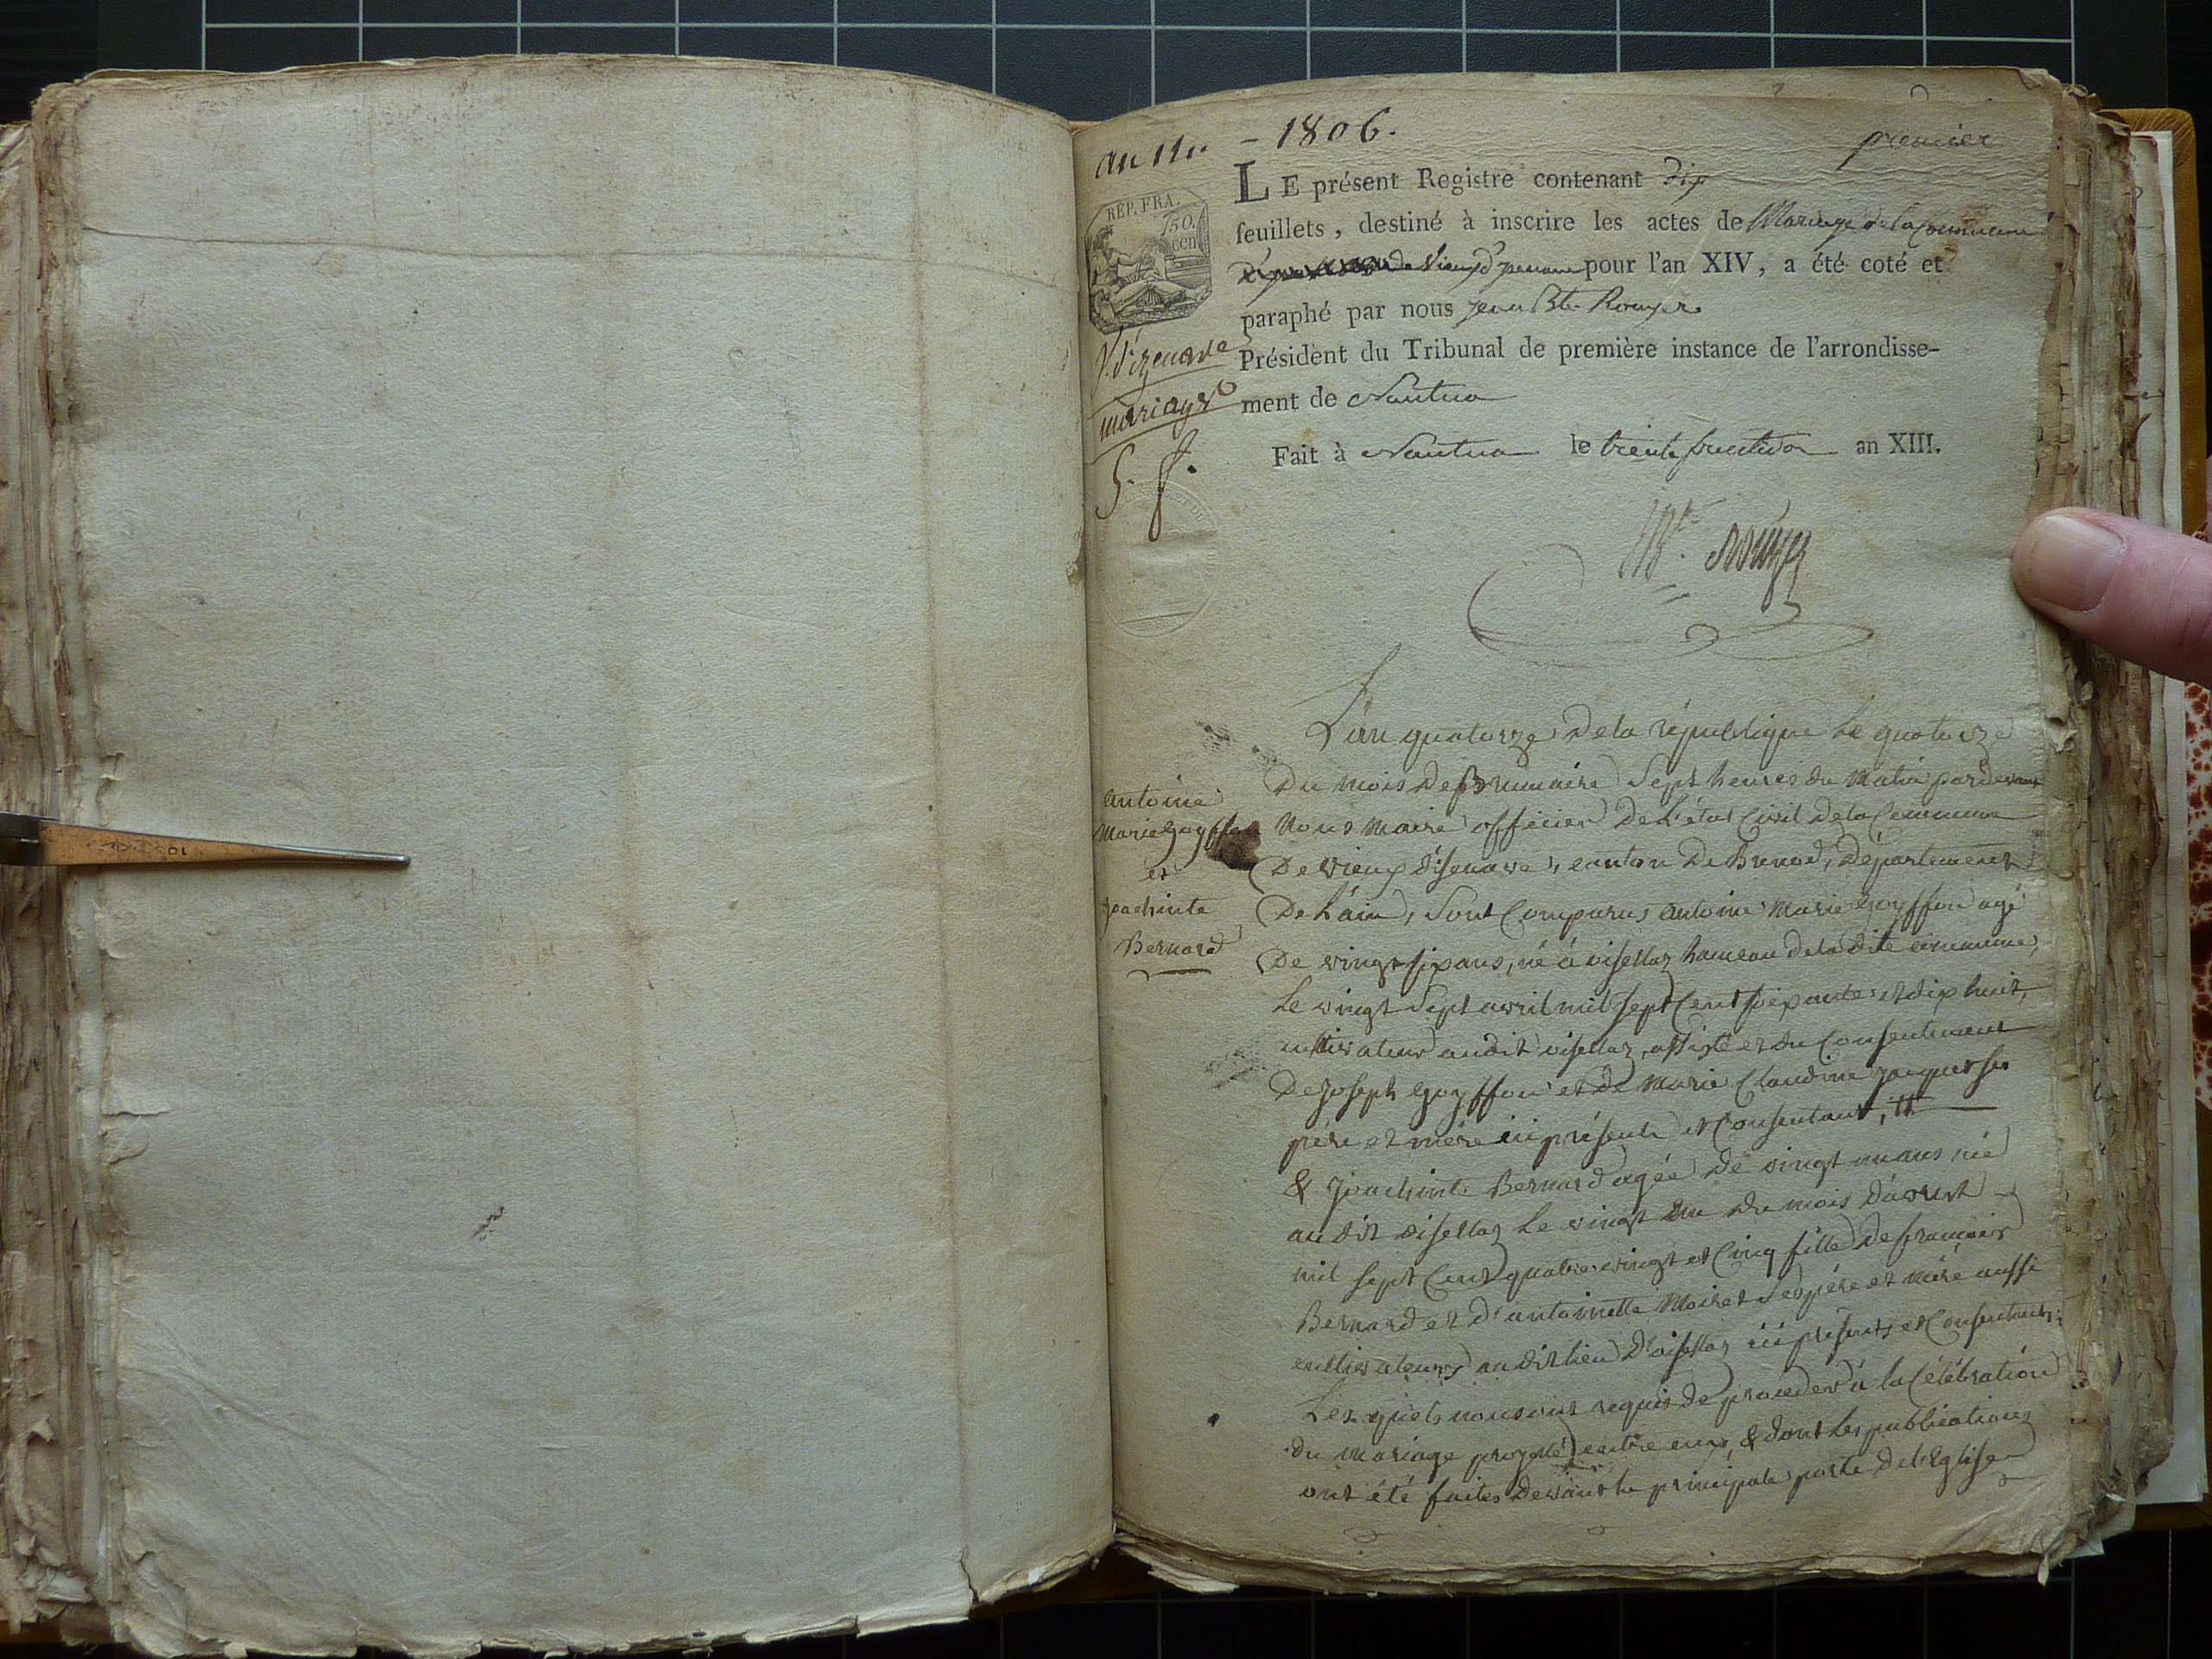 an 14. - 1806.
premier
RÉP. FRA.
50.
cen
LE présent Registre contenant dix
feuillets, destiné à inscrire les actes de Mariage de la Commune
de Vieux d'izenave pour l'an XIV, a été coté et
paraphé par nous Jean Bte. Rouyer
Président du Tribunal de première instance de l'arrondisse-
ment de Nantua
Fait à Nantua le trente fructidor an XIII.
V. d'izenave
mariages
Rouyer
Antoine
Marie goyffon
et
Joachinte
Bernard
L'an quatorze de la république le quatorze
du mois de Brumaire sept heures du matin pardevant
nous maire officier de l'état Civil de la Commune
de vieux d'isenave, canton de Brenod, département
de l'ain, sont Comparus antoine Marie goyffon agé
de vingt six ans, né à oisellaz hameau de la dite commune,
le vingt sept avril mil sept Cent soixante et dix huit,
cultivateur audit oisellaz, assisté et du Consentement
de joseph goyffon et de marie Claudine jacquet ses
père et mère ici présents et Consentant,
& Joachinte Bernard agée de vingt un ans née
au dit oisellaz le vingt un du mois d'avril
mil sept Cent quatre vingt et Cinq fille de françois
Bernard et d'antoinette Moiret ses père et mère aussi
cultivateurs au dit lieu d'oisellaz ici présents et Consentants;
Lesquels nous ont requis de proceder à la Célébration
du mariage projetté entre eux, & dont les publications
ont été faites devant la principale porte de l'Eglise